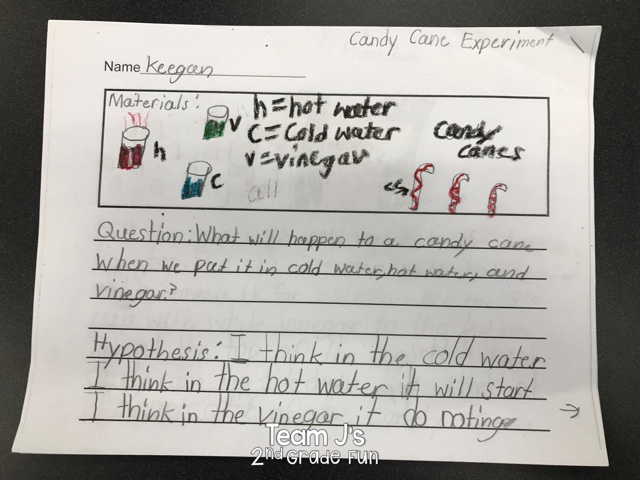 Candy Cane Experiment
Name Keegan
Materials:
h=hot water
c=cold water
v=vinegar
all
v
h
c
candy
canes
Question: What will happen to a candy cane
when we put it in cold water, hot water, and
vinegar?
Hypothesis: I think in the cold water
I think in the hot water it will start
I think in the vinegar it do noting
Team J's
2nd Grade Fun